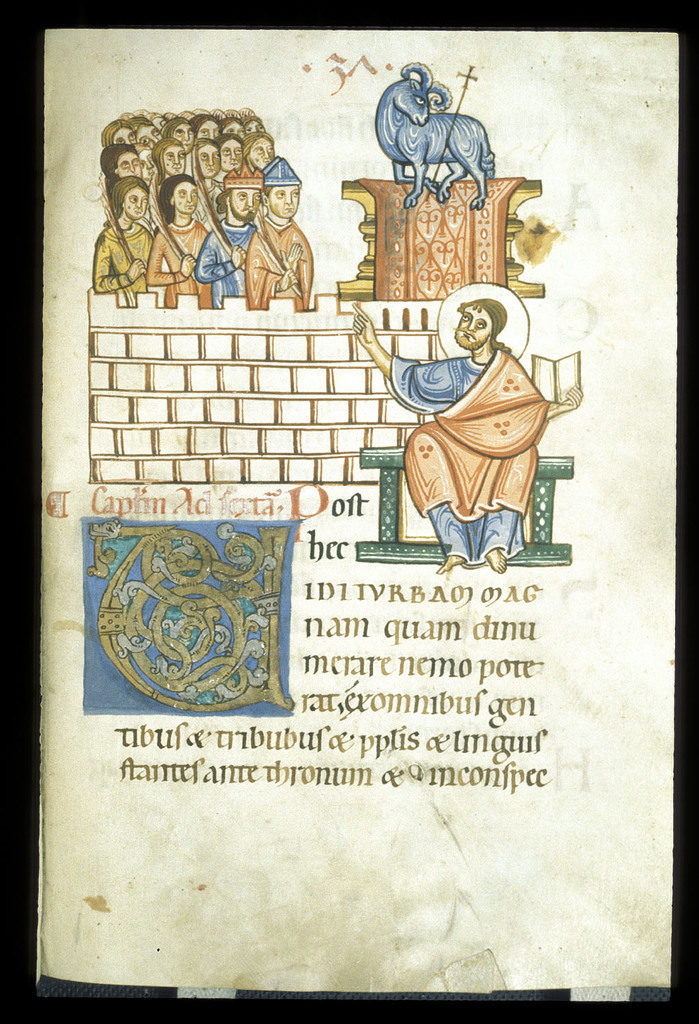 Post
hec
VIDI TURBAM MAG
nam quam dinu
merare nemo pote
rat, ex omnibus gen
tibus & tribubus & pplis & linguis
stantes ante thronum & in conspec